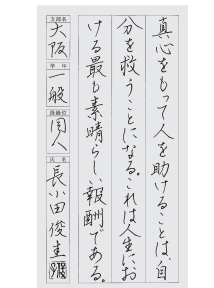 真心をもって人を助けることは、自
分を救うことになる。これは人生にお
ける最も素晴らしい報酬である。
支部名
大阪
学年
一般
段級位
同人
氏名
長小田俊圭